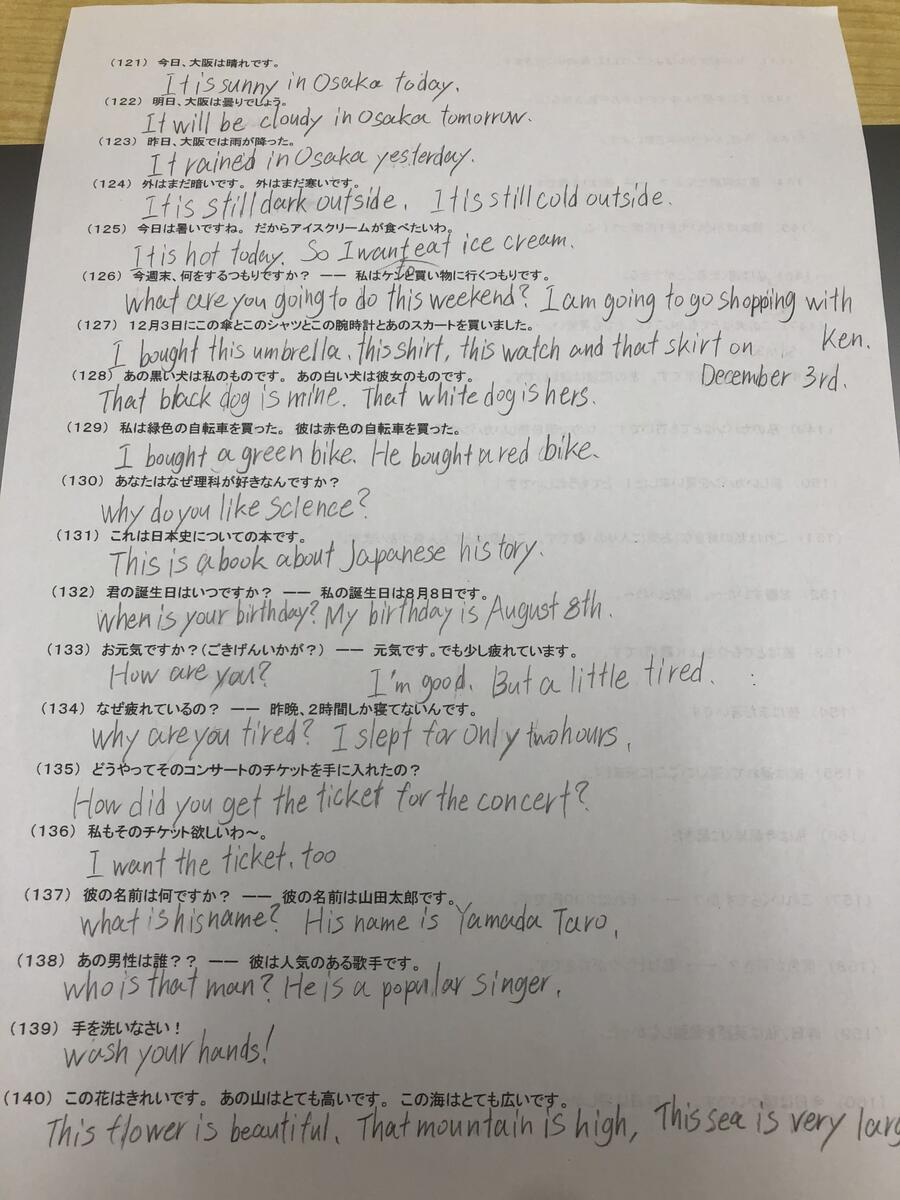 （121） 今日、大阪は晴れです。
It is sunny in Osaka today.
（122） 明日、大阪は曇りでしょう。
It will be cloudy in Osaka tomorrow.
（123） 昨日、大阪では雨が降った。
It rained in Osaka yesterday.
（124） 外はまだ暗いです。 外はまだ寒いです。
It is still dark outside. It is still cold outside.
（125） 今日は暑いですね。 だからアイスクリームが食べたいわ。
It is hot today. So I want eat ice cream.
to
（126） 今週末、何をするつもりですか？ ―― 私はケンと買い物に行くつもりです。
what are you going to do this weekend? I am going to go shopping with
Ken.
（127） 12月3日にこの傘とこのシャツとこの腕時計とあのスカートを買いました。
I bought this umbrella, this shirt, this watch and that skirt on
December 3rd.
（128） あの黒い犬は私のものです。 あの白い犬は彼女のものです。
That black dog is mine. That white dog is hers.
（129） 私は緑色の自転車を買った。 彼は赤色の自転車を買った。
I bought a green bike. He bought a red bike.
（130） あなたはなぜ理科が好きなんですか？
why do you like science?
（131） これは日本史についての本です。
This is a book about Japanese history.
（132） 君の誕生日はいつですか？ ―― 私の誕生日は8月8日です。
when is your birthday? My birthday is August 8th.
（133） お元気ですか？（ごきげんいかが？） ―― 元気です。でも少し疲れています。
How are you? I'm good. But a little tired.
（134） なぜ疲れているの？ ―― 昨晩、2時間しか寝てないんです。
why are you tired? I slept for only two hours.
（135） どうやってそのコンサートのチケットを手に入れたの？
How did you get the ticket for the concert?
（136） 私もそのチケット欲しいわ～。
I want the ticket, too
（137） 彼の名前は何ですか？ ―― 彼の名前は山田太郎です。
what is his name? His name is Yamada Taro.
（138） あの男性は誰？？ ―― 彼は人気のある歌手です。
who is that man? He is a popular singer.
（139） 手を洗いなさい！
wash your hands!
（140） この花はきれいです。 あの山はとても高いです。 この海はとても広いです。
This flower is beautiful. That mountain is high, This sea is very larg